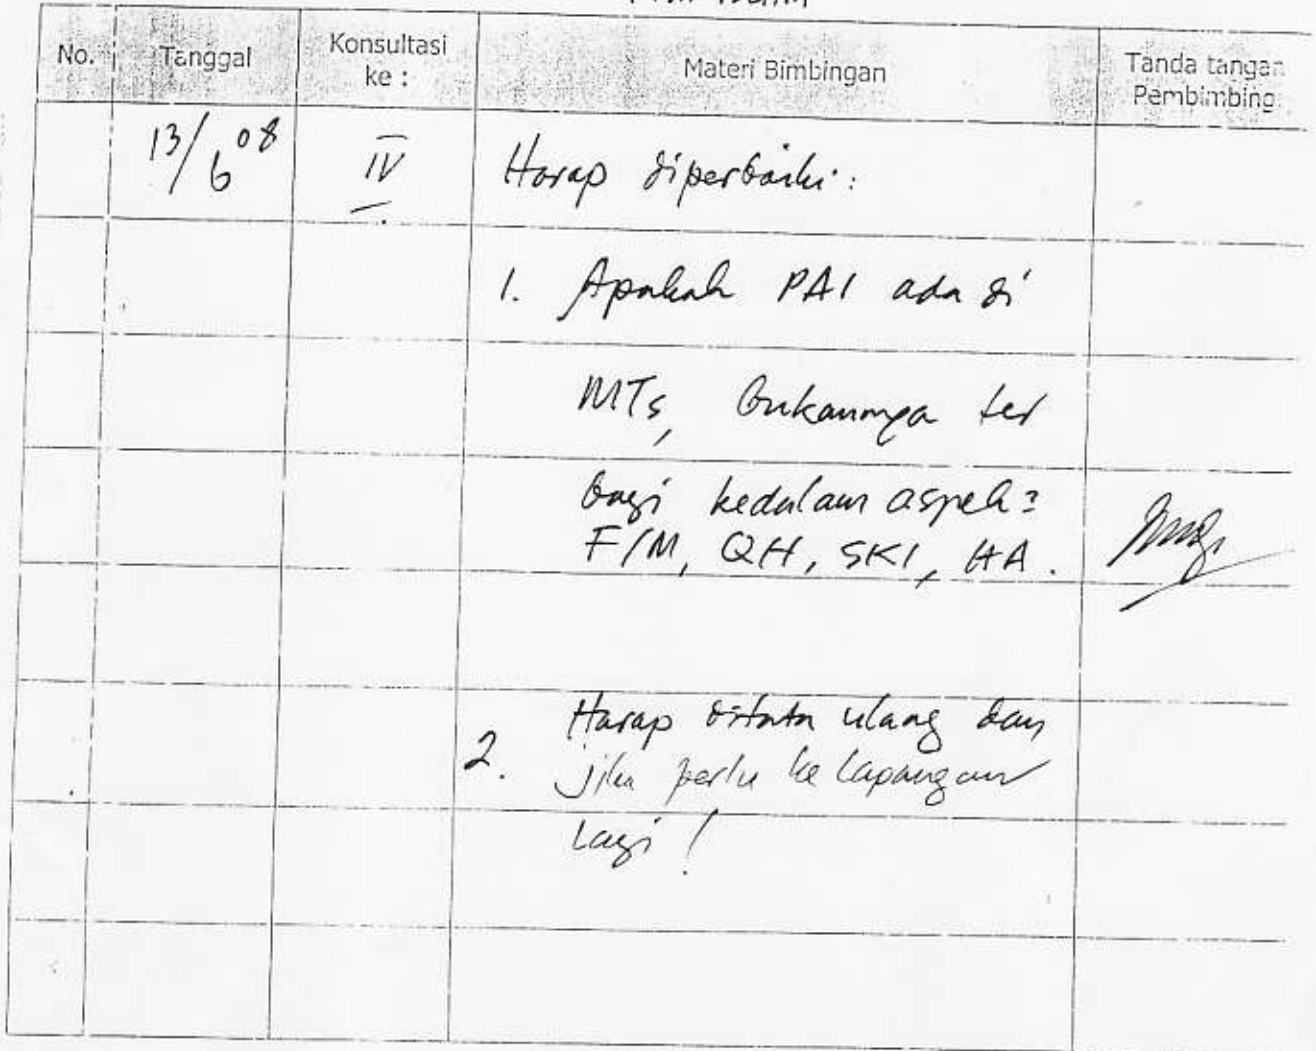 No. Tanggal Konsultasi ke : Materi Bimbingan Tanda tangan Pembimbing
13/6 08 IV Harap diperbaiki:
1. Apakah PAI ada di
MTs, bukannya ter
bagi kedalam aspek?
F/M, QH, SKI, AA.
2. Harap ditata ulang dan
jika perlu ke lapangan
lagi!